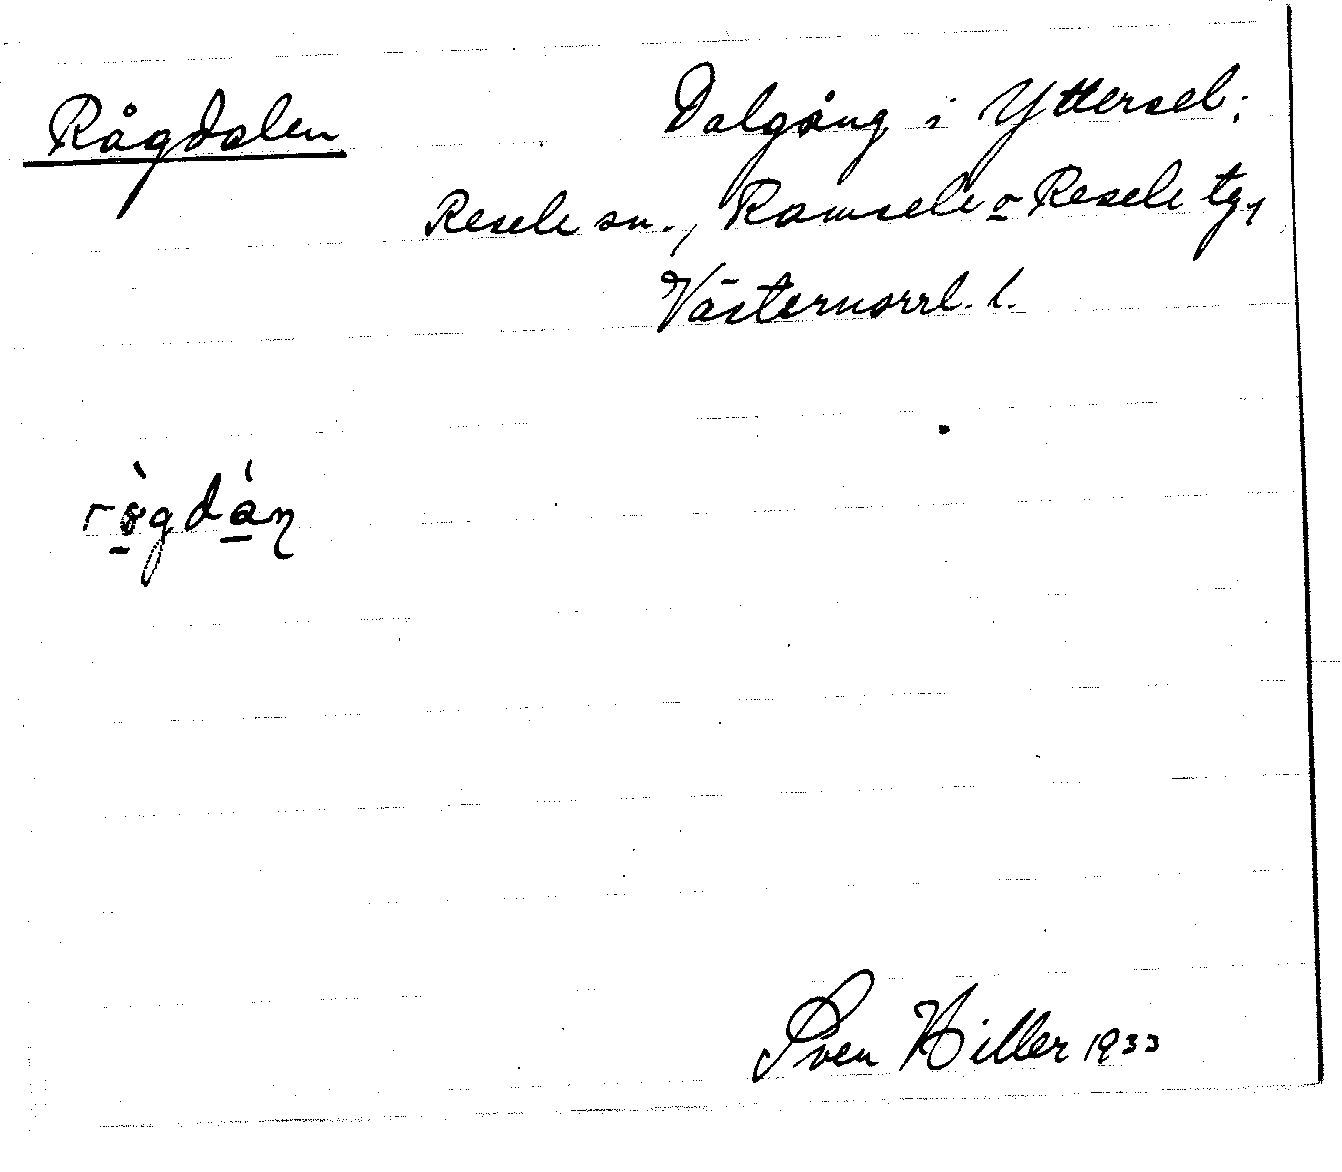 Rågdalen
Dalgång i Yttersel;
Resele sn., Ramsele o Resele tg,
Västernorrl. l.
rògdán
Sven Hiller 1933